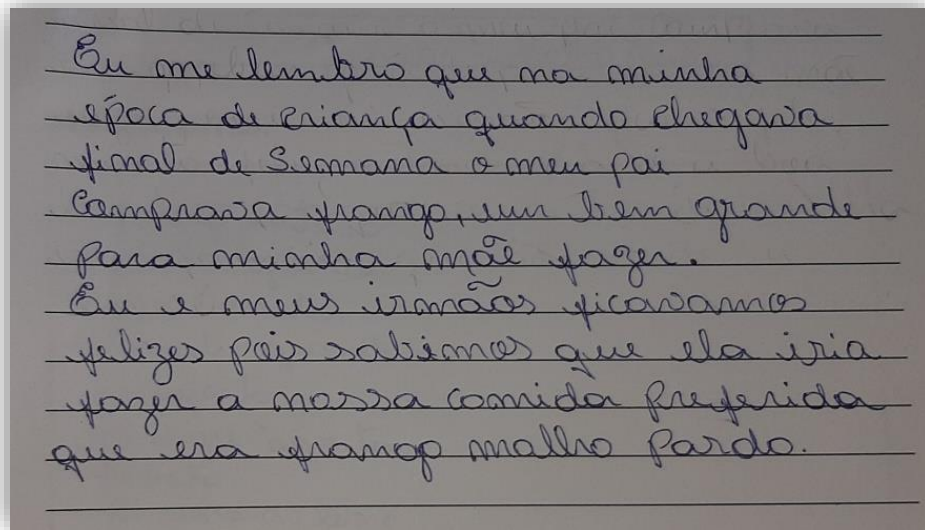 Eu me lembro que na minha
época de criança quando chegava
final de Semana o meu pai
Comprava frango, um bem grande
para minha mãe fazer.
Eu e meus irmãos ficavamos
felizes pois sabiamos que ela iria
fazer a nossa comida preferida
que era frango malho pardo.